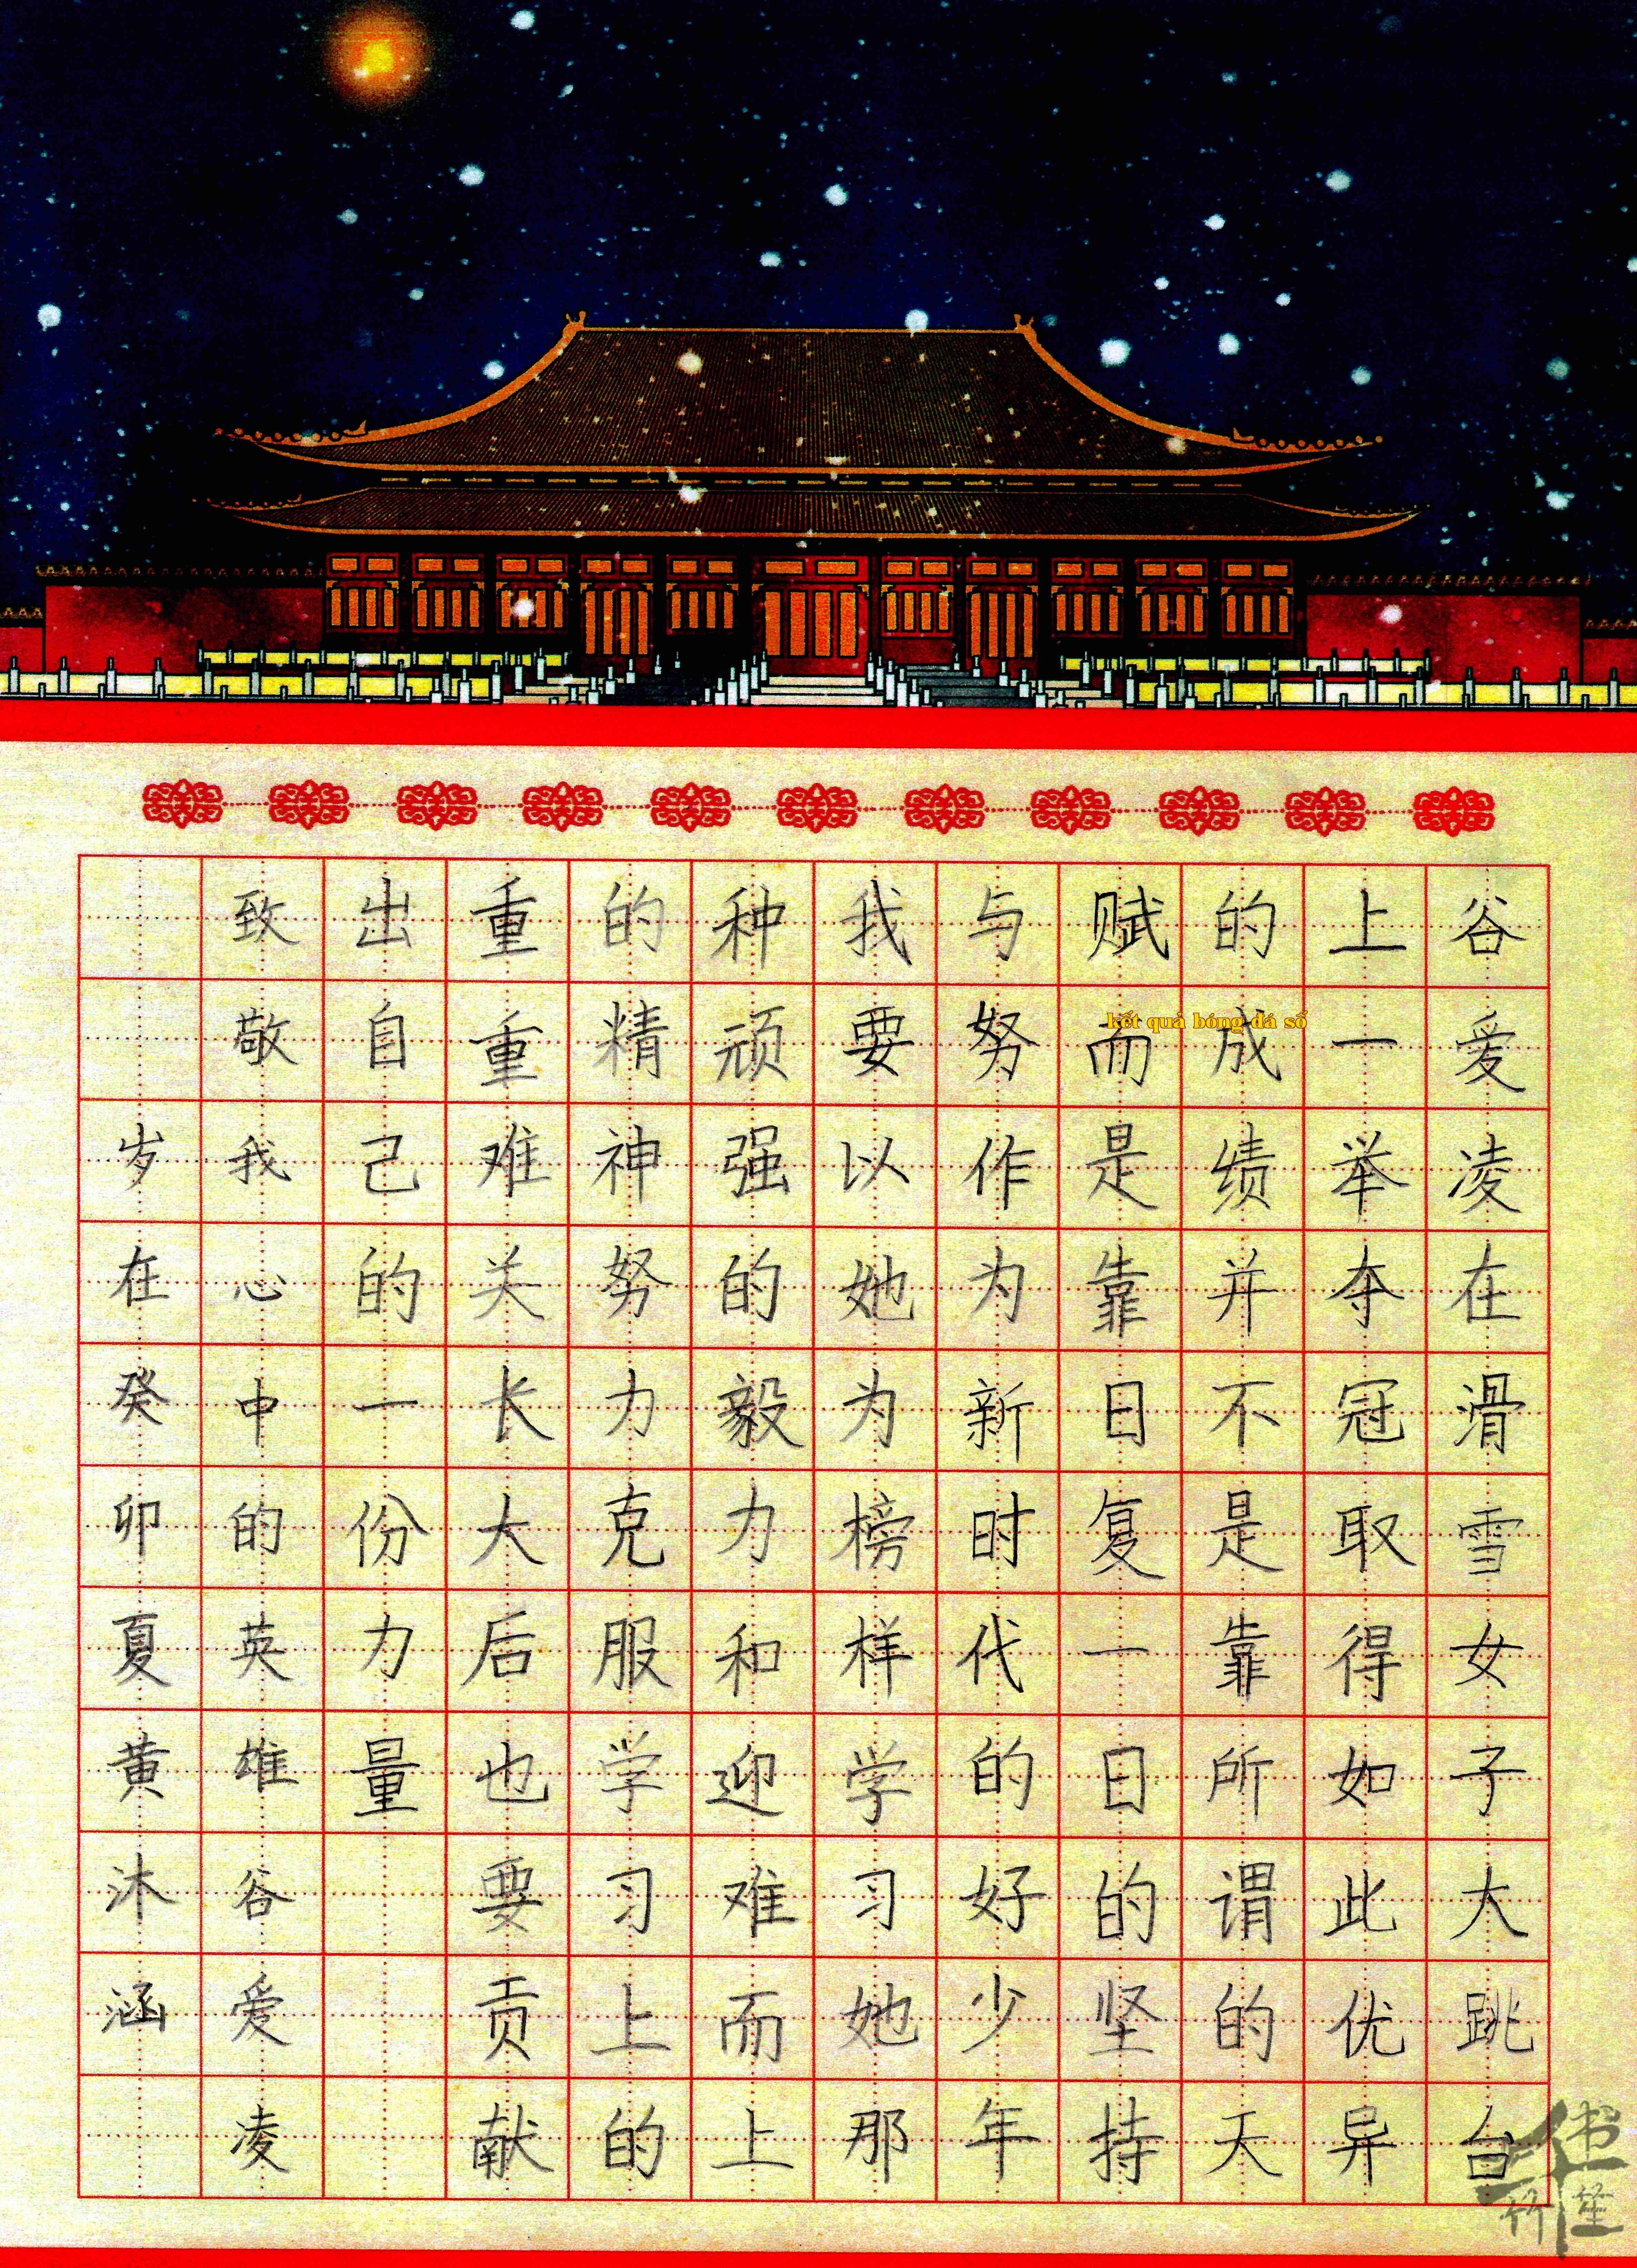 谷爱凌在滑雪女子大跳台
上一举夺冠取得如此优异
的成绩并不是靠所谓的天
赋而是靠日复一日的坚持
与努作为新时代的好少年
我要以她为榜样学习她那
种顽强的毅力和迎难而上
的精神努克服学习上的
重重难关长大后也要贡献
出自己的一份力量
致敬我心中的英雄谷爱凌
岁在癸卯夏黄沐涵
kết quả bóng đá số